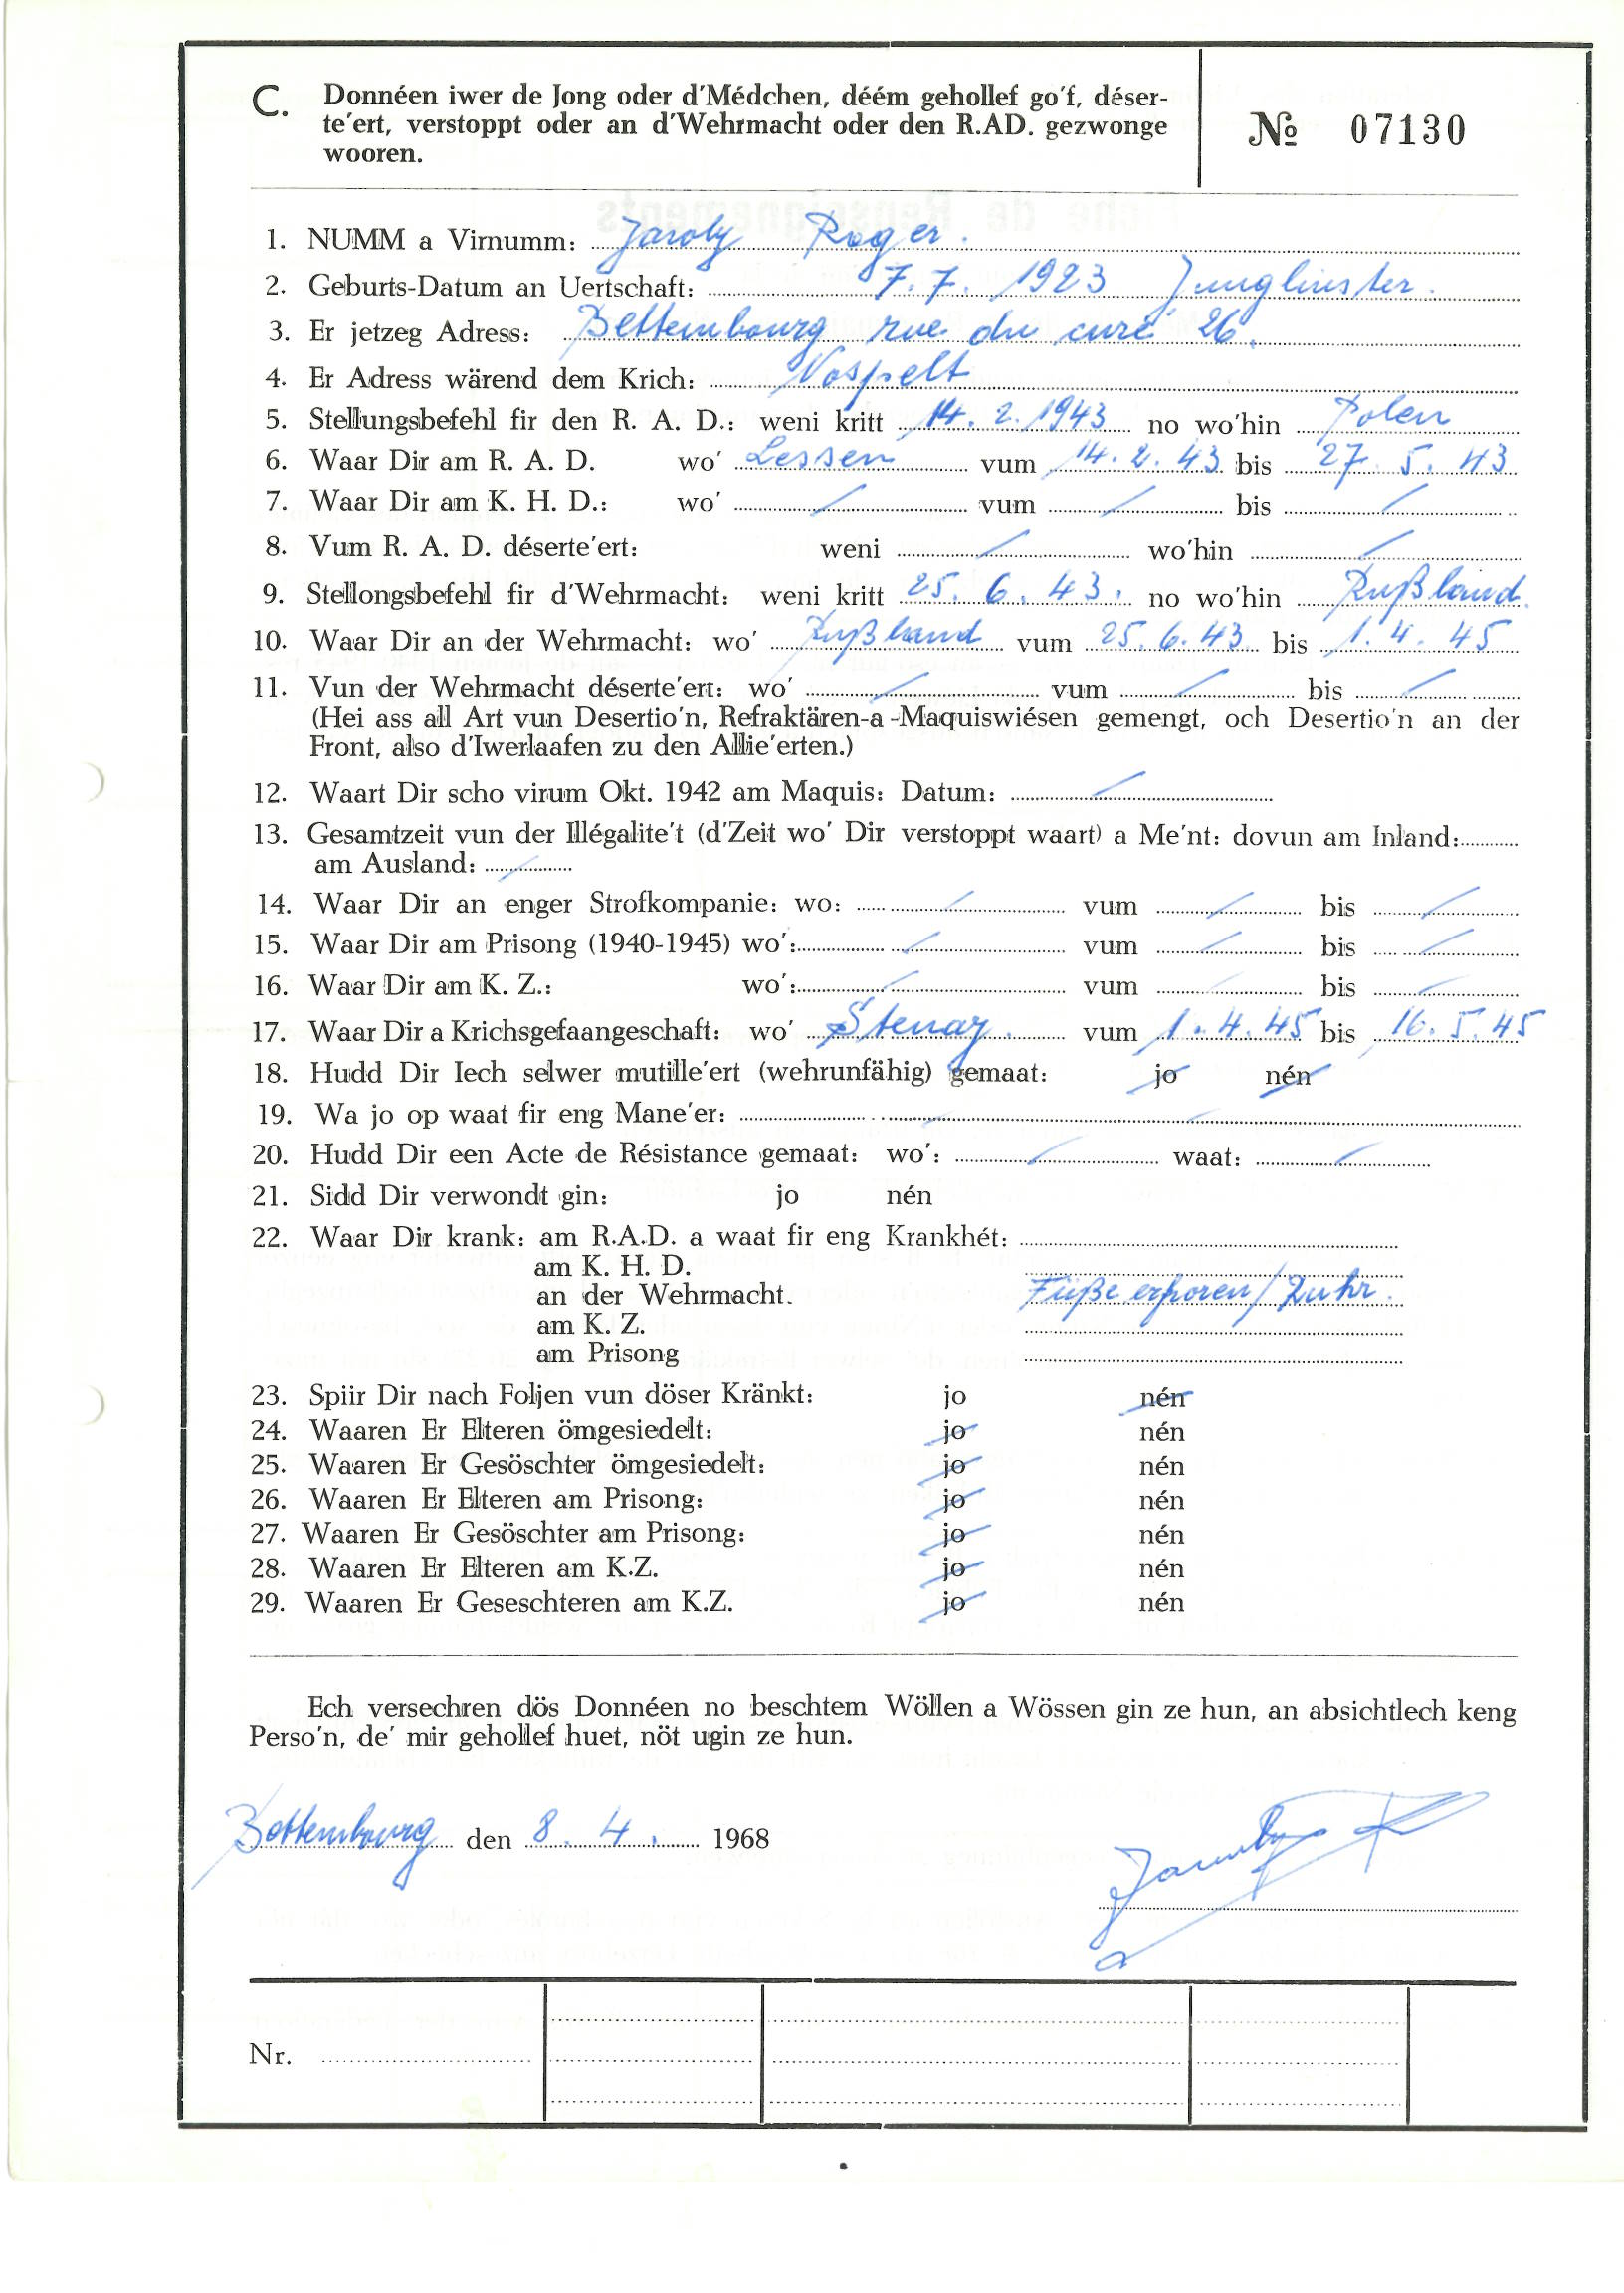 C. Donnéen iwer de Jong oder d'Médchen, déém gehollef go'f, déser-
te'ert, verstoppt oder an d'Wehrmacht oder den R.AD. gezwonge
wooren.
№ 07130
1. NUMM a Virnumm: Jacoby Roger.
2. Geburts-Datum an Uertschaft: 7.7.1923 Junglinster.
3. Er jetzeg Adress: Bettembourg rue du curé 26.
4. Er Adress wärend dem Krich: Nospelt
5. Stellungsbefehl fir den R. A. D.: weni kritt 14.2.1943 no wo'hin Polen
6. Waar Dir am R. A. D. wo' Lessen vum 14.2.43 bis 27.5.43
7. Waar Dir am K. H. D.: wo' / vum / bis /
8. Vum R. A. D. déserte'ert: weni / wo'hin /
9. Stellongsbefehl fir d'Wehrmacht: weni kritt 25.6.43. no wo'hin Rußland.
10. Waar Dir an der Wehrmacht: wo' Rußland vum 25.6.43. bis 1.4.45
11. Vun der Wehrmacht déserte'ert: wo' / vum / bis /
(Hei ass all Art vun Desertio'n, Refraktären-a-Maquiswiésen gemengt, och Desertio'n an der
Front, also d'Iwerlaafen zu den Allie'erten.)
12. Waart Dir scho virum Okt. 1942 am Maquis: Datum: /
13. Gesamtzeit vun der Illégalite't (d'Zeit wo' Dir verstoppt waart) a Me'nt: dovun am Inland:
am Ausland: /
14. Waar Dir an enger Strofkompanie: wo: / vum / bis /
15. Waar Dir am Prisong (1940-1945) wo': / vum / bis /
16. Waar Dir am K. Z.: wo': / vum / bis /
17. Waar Dir a Krichsgefaangeschaft: wo' Stenay. vum 1.4.45 bis 16.5.45
18. Hudd Dir Iech selwer mutille'ert (wehrunfähig) gemaat: jo nén
19. Wa jo op waat fir eng Mane'er: / /
20. Hudd Dir een Acte de Résistance gemaat: wo': / waat: /
21. Sidd Dir verwondt gin: jo nén
22. Waar Dir krank: am R.A.D. a waat fir eng Krankhét:
am K. H. D.
an der Wehrmacht. Füße erfroren / Ruhr.
am K. Z.
am Prisong
23. Spiir Dir nach Foljen vun döser Kränkt: jo nén
24. Waaren Er Elteren ömgesiedelt: jo nén
25. Waaren Er Gesöschter ömgesiedelt: jo nén
26. Waaren Er Elteren am Prisong: jo nén
27. Waaren Er Gesöschter am Prisong: jo nén
28. Waaren Er Elteren am K.Z. jo nén
29. Waaren Er Geseschteren am K.Z. jo nén
Ech versechren dös Donnéen no beschtem Wöllen a Wössen gin ze hun, an absichtlech keng
Perso'n, de' mir gehollef huet, nöt ugin ze hun.
Bettembourg den 8.4. 1968
Jacoby R
Nr.